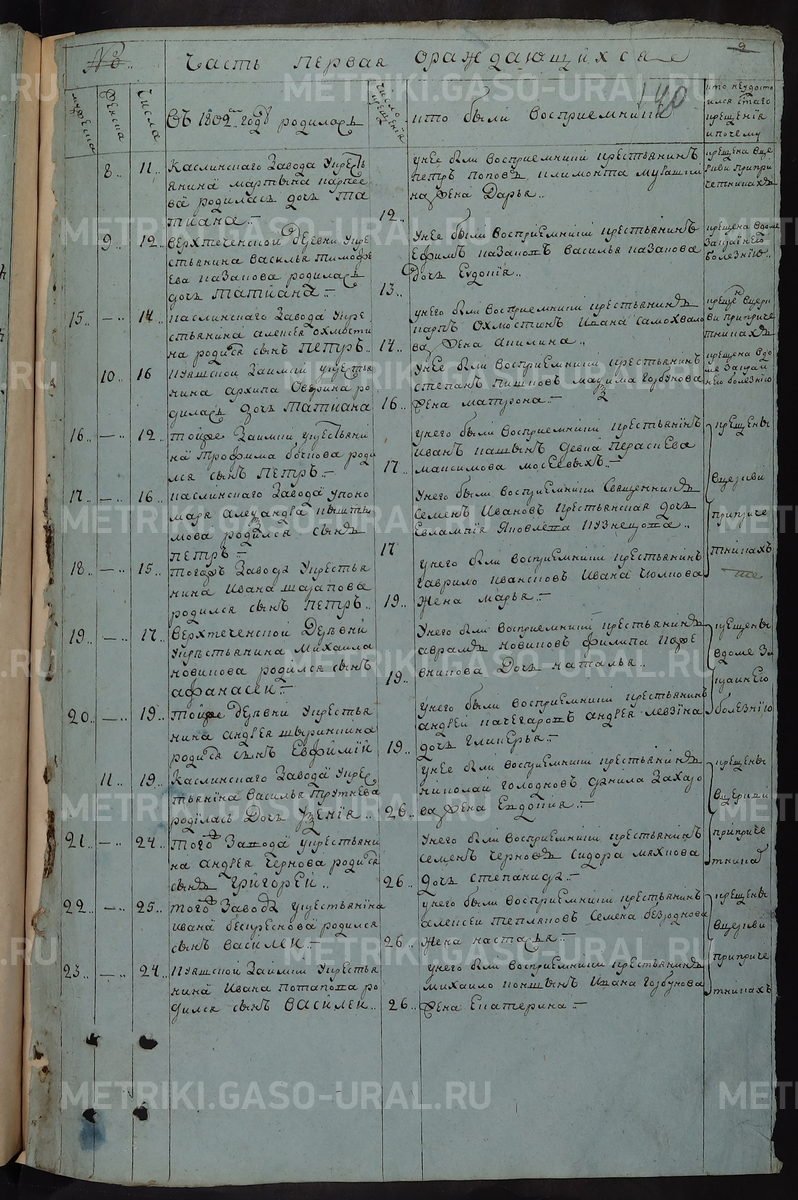 №
Часть первая ораждающихся
9
140
мужеска
женска
числа
Въ 1802м годѣ родилась
число крещенія
кто были восприемники
кто неудосто
ился стаго
крещенія
и почему
8 .. 11 ..
Каслинскаго Завода укресть
янина мартына карпее
ва родилась дочь та
тиана
12 ..
унее были восприемники крестьянинъ
петръ поповъ, климонта мукашин
на жена Дарья
крещена вце
ркви припри
четникахъ
9 .. 12 ..
верхтеченской деревни укре
стьянина василья тимофѣ
ева казакова родилась
дочь татиана
13 ..
унее были восприемники крестьянинъ
Ефимъ казаковъ василья казакова
дочь Евдокия
крещена вдоме
Закрайнего
болезнію
15 .. — .. 14 ..
каслинскаго Завода укре
стьянина алексея охлюсти
на родился сынъ петръ
14 ..
унего были восприемники крестьянинъ
карпъ охлюстинъ ивана самохвало
ва жена акилина
вцерк
ви приприче
тникахъ
10 .. 16
куяшской Заимки укрестья
нина архипа Оверина ро
дилась дочь татиана
16 ..
унее были восприемники крестьянинъ
степанъ пишковъ маѯима горбунова
жена матрона
крещена вдо
ме Закрай
него болезнію
16 .. — .. 12 ..
тойже Заимки укрестьяни
на трофима бочкова роди
лся сынъ петръ
17 ..
унего были восприемники крестьянинъ
иванъ кашинъ девка пераскева
максимова мосеевыхъ
крещены
вцеркви
приприче
тникахъ
17 .. — .. 16 ..
каслинскаго Завода упоно
маря алеѯандра кышты
мова родился сынъ
петръ
17
унего были восприемники священникъ
семенъ Ивановъ крестьянская дочь
Евлампия яковлева кузнецова
18 .. — .. 15 ..
тогожъ Завода укрестья
нина Ивана шарапова
родился сынъ петръ
19 ..
унего были восприемники крестьянинъ
гаврило Иванковъ ивана Чюлкова
жена марья
19 .. — .. 17 ..
верхтеченской деревни
укрестьянина михаила
новикова родился сынъ
афанасей
19 ..
унего были восприемники крестьянинъ
авраамъ новиковъ филипа
дочь наталья
крещены
вдоме За
крайнего
болезнію
20 .. — .. 19 ..
тойже деревни укрестья
нина андрея ширинкина
родился сынъ Евфимий
19 ..
унего были восприемники крестьянинъ
андрей качегаровъ андрея левзина
дочь гликерья
11 .. 19 ..
Каслинскаго Завода укрес
тьянина василья трутнева
родилась дочь Ѯения
26 ..
унее были восприемники крестьянинъ
николай голодновъ данила Захаро
ва жена Евдокия
крещены
вцеркви
приприче
тника
21 .. — .. 24 ..
того Завода укрестьяни
на андрея чернова родился
сынъ григорей
26 ..
унего были восприемники крестьянинъ
семенъ черновъ сидора мяхкова
дочь степанида
22 .. — .. 25 ..
того Завода укрестьянина
ивана беспреснова родился
сынъ василей
26 ..
унего были восприемники крестьянинъ
алексей тепляковъ семена безроднова
жена настасья
крещены
вцеркви
приприче
тникахъ
23 .. — .. 24 ..
куяшской Заимки укрестья
нина Ивана потапова ро
дился сынъ василей
26 ..
унего были восприемники крестьянинъ
михайло кокшинъ ивана горбунова
жена Екатерина
METRIKI.GASO-URAL.RU